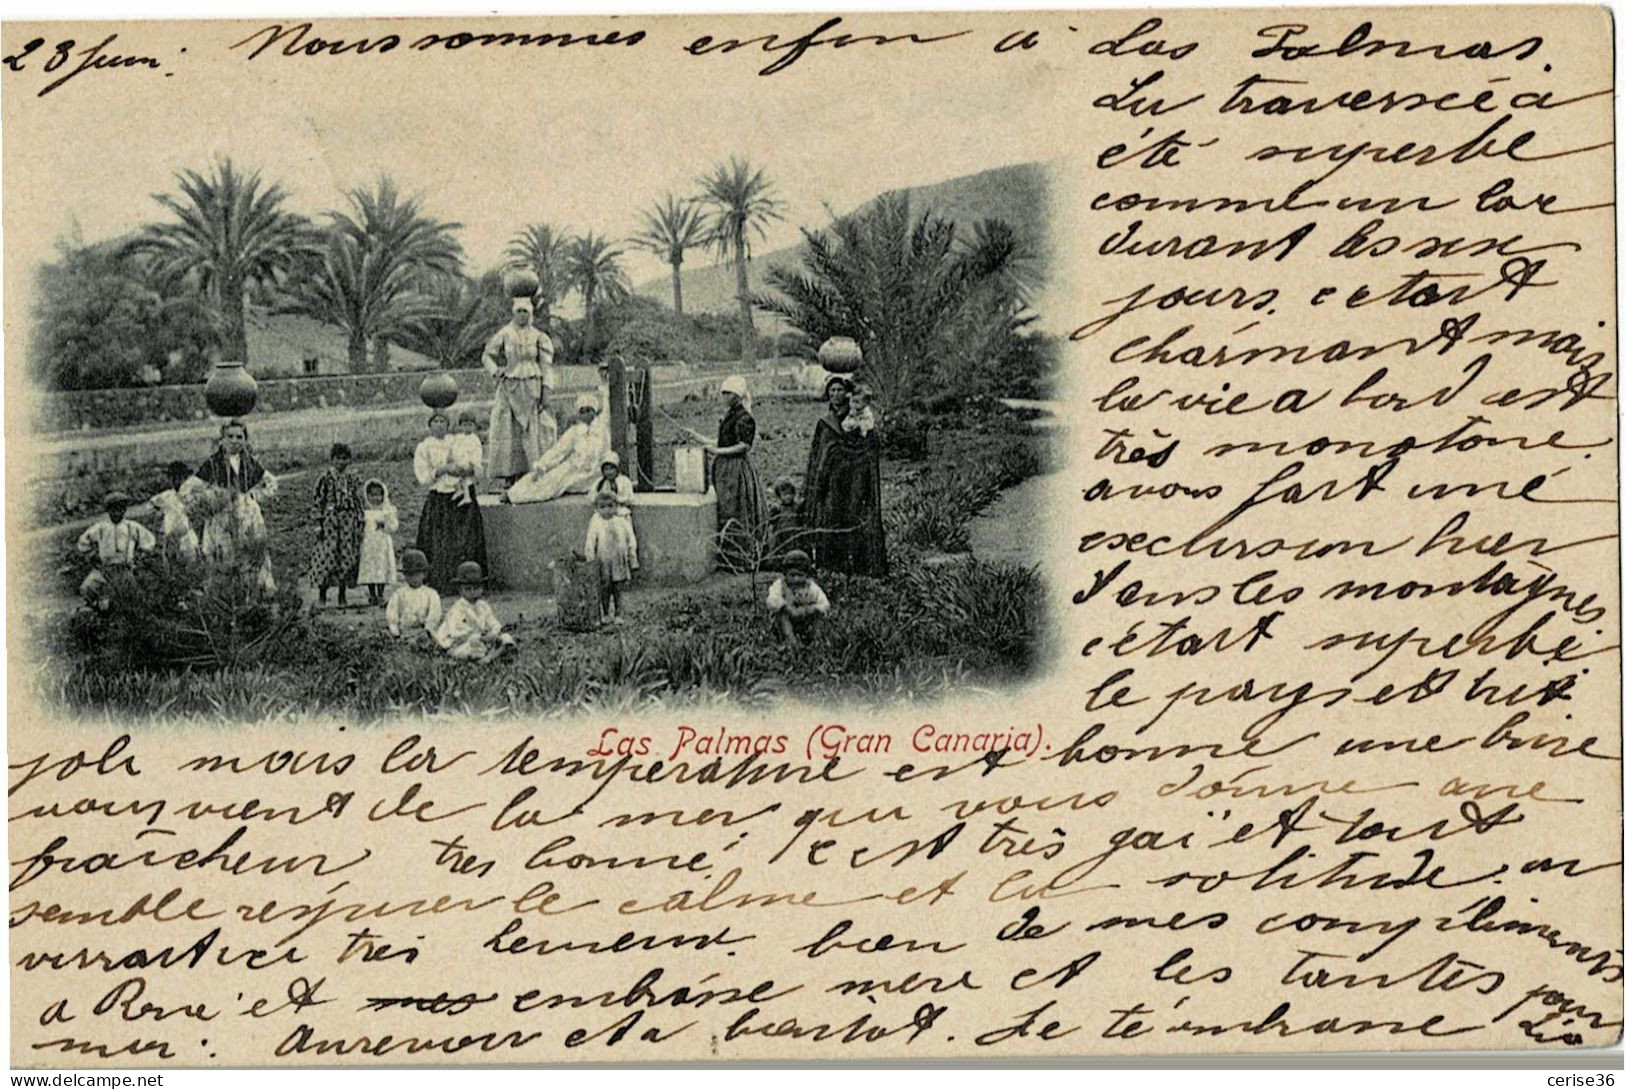 28 Juin. Nous sommes enfin à Las Palmas.
La traversée a
été superbe
comme un lac
durant les six
jours. c'etait
charmant mais
la vie a bord est
très monotone.
avons fait une
excursion hier
dans les montagnes
c'était superbe.
le pays est très
Las Palmas (Gran Canaria).
joli mais la température est bonne une brise
vous vient de la mer qui vous donne une
fraîcheur très bonne. c'est très gai et tout
semble respirer le calme et la solitude. on
vivrait ici très heureux. bien de mes compliments
a René et embrasse mère et les tantes pour
moi. Aurevoir et a bientot. Je t'embrasse
cerise36